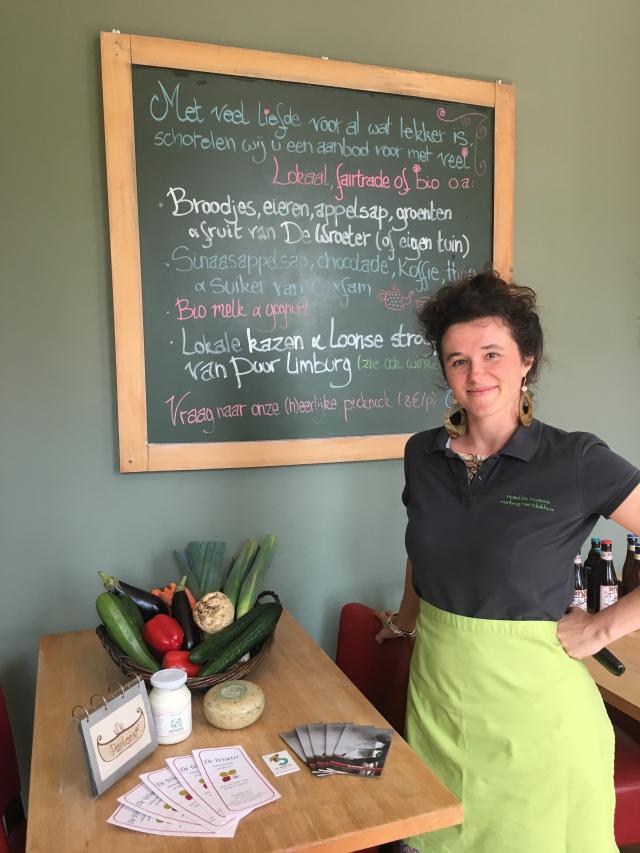 Met veel liefde voor al wat lekker is,
schotelen wij u een aanbod voor met veel
Lokaal, fairtrade of bio o.a:
· Broodjes, eieren, appelsap, groenten
& fruit van De Wroeter (of eigen tuin)
· Sinaasappelsap, chocolade, koffie, thee
& suiker van Oxfam
· Bio melk & yoghurt
· Lokale kazen & Loonse
van Puur Limburg (zie ook
Vraag naar onze (h)eerlijke picknick (8€/p)
De Wroeter